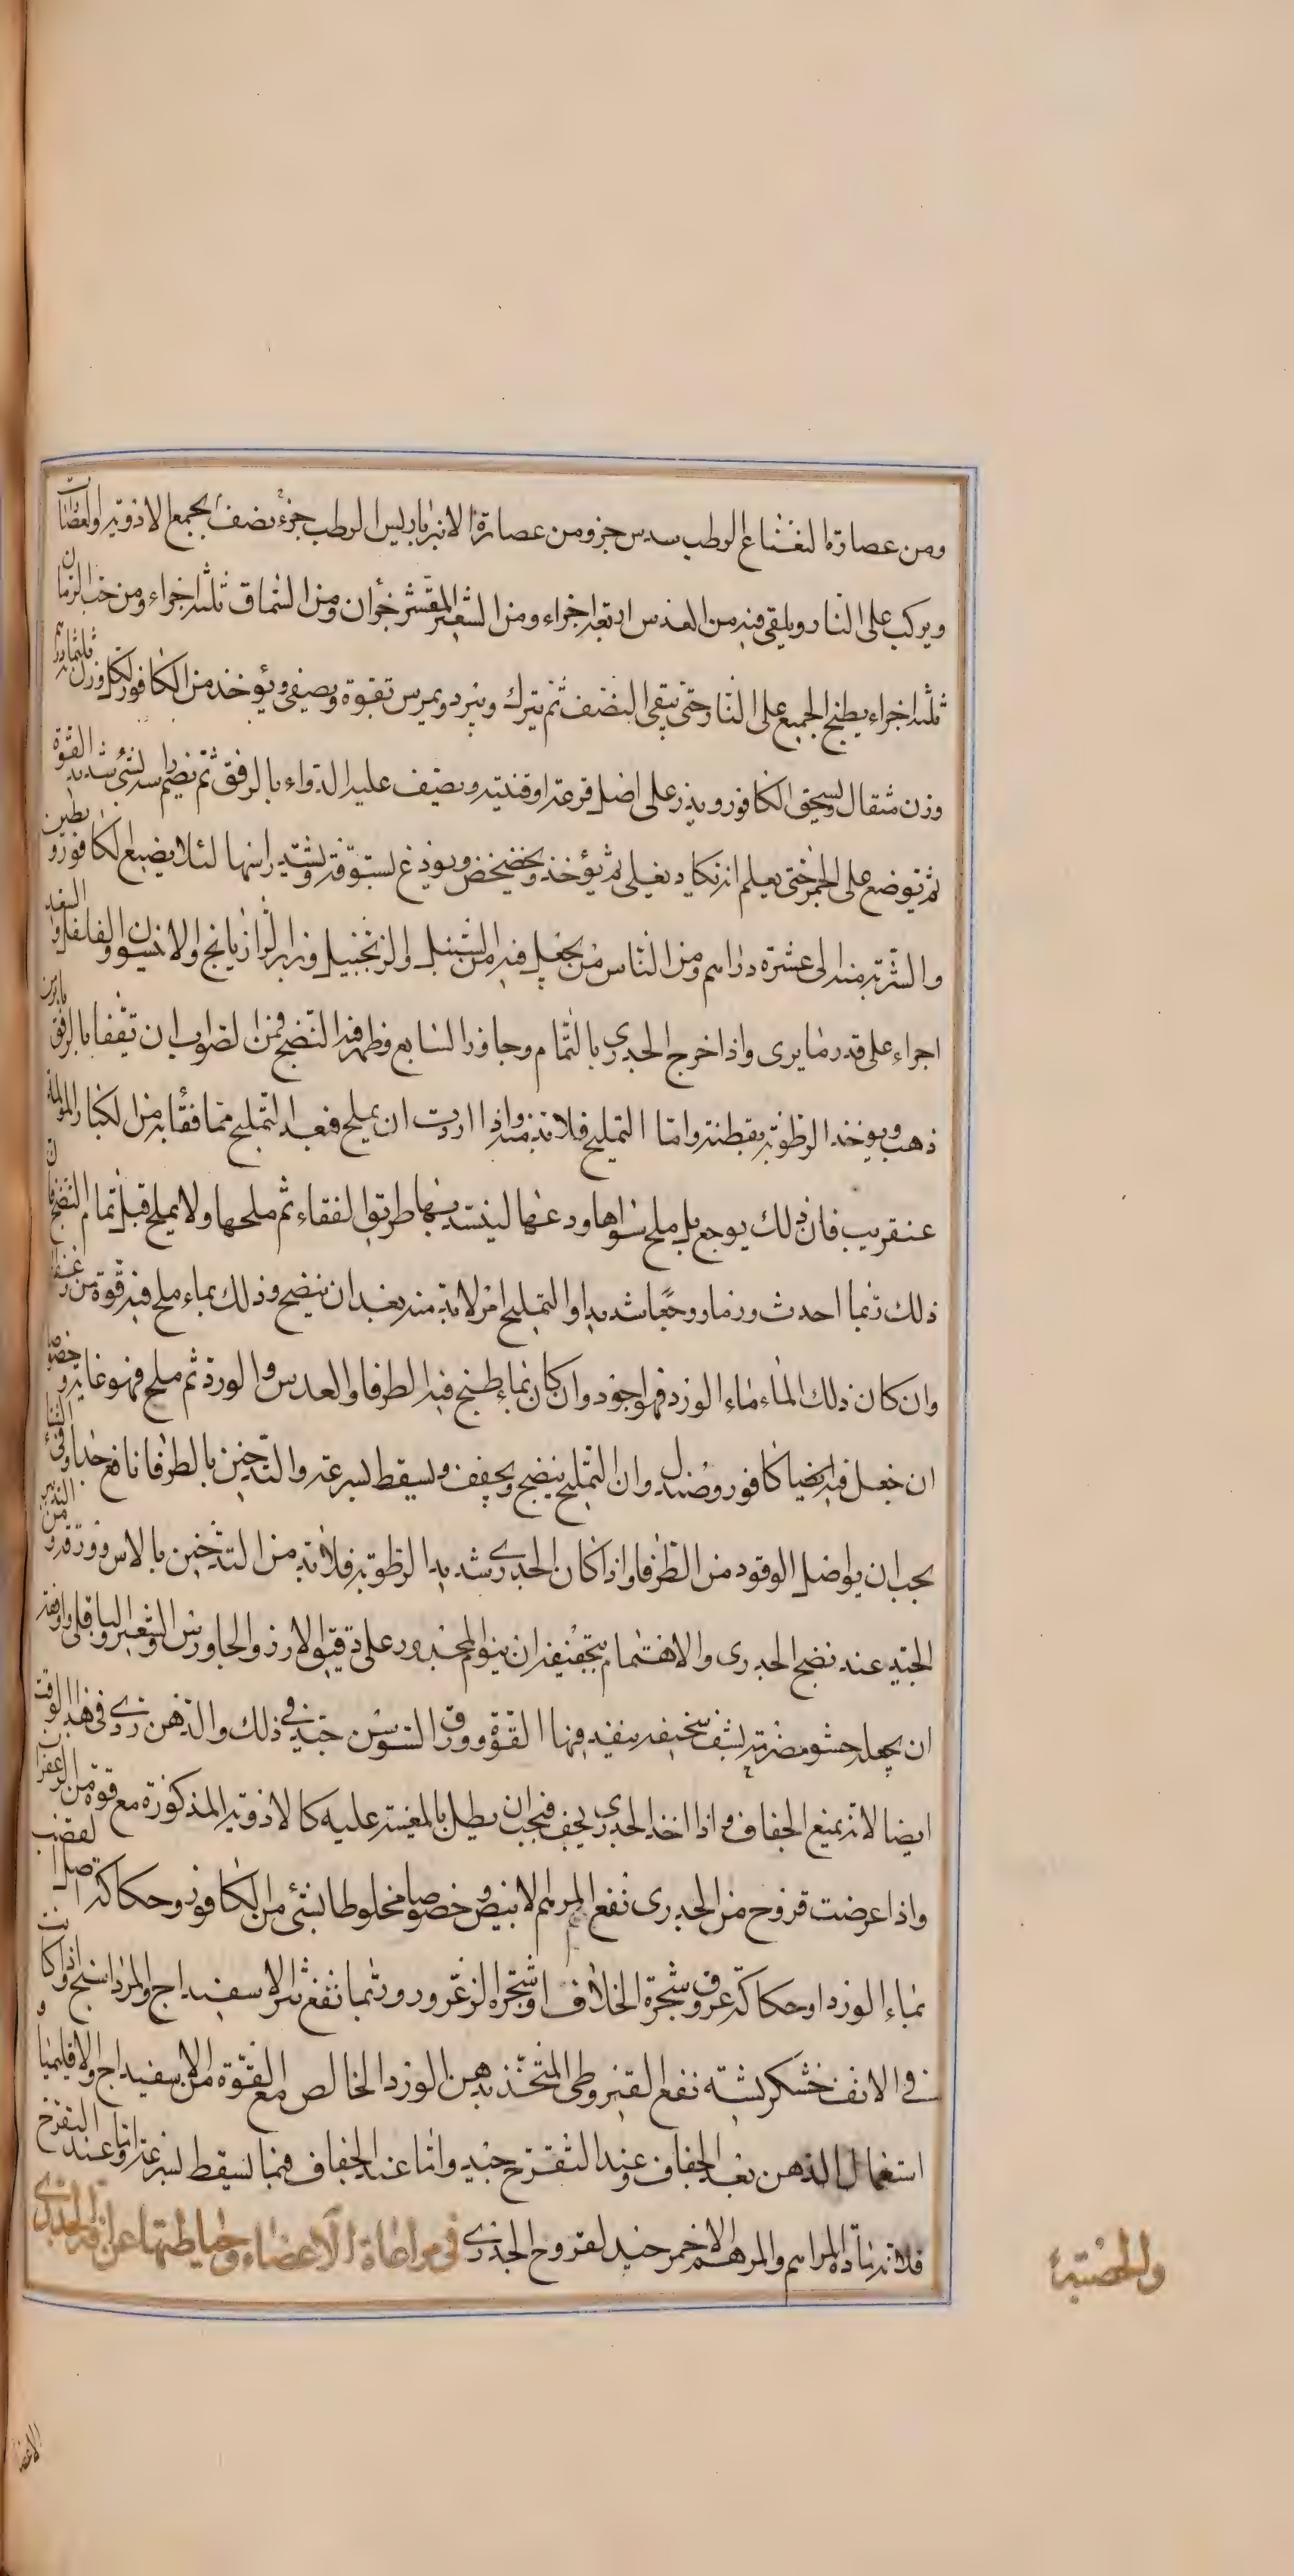 ومن عصارة النعناع الرطب سدس جزو ومن عصارة الانبرباريس الرطب جزء ونصف يجمع الادوية والعصارات
ويركب على النار ويلقى فيه من العدس اربعة اجزاء ومن الشعير المقشر جزأن ومن السماق ثلثه اجزاء ومن حب الرمان
ثلثه اجزاء يطبخ الجميع على النار حتى يبقى النصف ثم يترك ويبرد ويمرس بقوة ويصفى ويؤخذ من الكافور لكل وزن ثلثمائه درهم
وزن مثقال ويسحق الكافور ويذر على اصل قرعة او قنينه ويصب عليه الدواء بالرفق ثم يصم راسه بشئ شديد القوة
ثم توضع على الجمر حتى يعلم انه يكاد يغلى ثم يؤخذ ويخضخض ويودع بستوقة ويشد راسها لئلا يضيع الكافور و يطير
والشربه منه الى عشرة دراهم ومن الناس من يجعل فيه من السنبل والزنجبيل وبزر الرازيانج والانيسون والفلفل و السعد
اجراء على قدر ما يرى واذا خرج الجدرى بالتمام وجاوز السابع وظهر فيه النضج فمن الصواب ان تفقا بالرفق بابرمن
ذهب ويوخذ الرطوبة بقطنة واما التمليح فلا بد منه واذا اردت ان يملح فبعد التمليح مما فقأته من الكبار المؤلمة
عن قريب فان ذلك يوجع بل ملح سواها ودعها لينسد بها طريق الفقاء ثم ملحها ولا يملح قبل تمام النضج فان
ذلك ربما احدث ورما ووجعا شديدا والتمليح امر لا بد منه بعد ان ينضج وذلك بماء ملح فيه قوة من زعفران
وان كان ذلك الماء ماء الورد فهو اجود وان كان بماء طبخ فيه الطرفا والعدس والورد ثم ملح فهو غايه و خصوصا
ان جعل فيه ايضا كافور وصندل وان التمليح ينضج ويجفف ويسقط بسرعة والتدخين بالطرفا نافع جدا وفى الشتاء
يجب ان يواصل الوقود من الطرفا واذا كان الجدرى شديد الرطوبة فلا بد من التدخين بالاس وورقه و من التدبير
الجيد عند نضج الجدرى والاهتمام بتجفيفه ان ينوم المجدور على دقيق الارز والجاورس والشعير والباقلى واوفقه
ان يجعل حشو مضربة سخيفة ينفذ فيها القوة وورق السوسن جيد فى ذلك والدهن ردى فى هذا الوقت
ايضا لانه يمنع الجفاف و اذا اخذ الجدرى يجف فيجب ان يطلى بالمغيرة عليه كالادوية المذكورة مع قوة من الزعفران
واذا عرضت قروح من الجدرى نفع المرهم الابيض وخصوصا مخلوطا بشئ من الكافور وحكاكة اصل القصب
بماء الورد او حكاكة عروق شجرة الخلاف او شجرة الزعرور وربما نفع نثر الاسفيداج والمرداسنج واذا كانت
فى الانف خشكريشة نفع القيروطى المتخذ بدهن الورد الخالص مع القوة من الاسفيداج والاقليميا و
استعمال الدهن بعد الجفاف وعند التقرح جيد واما عند الجفاف فيما يسقط بسرعة واما عند التقرح
فلانه مادة المراهم والمرهم الاحمر جيد لقروح الجدرى فى مراعاة الاعضاء وحياطتها عن افة الجدرى
والحصبة
الاعضا